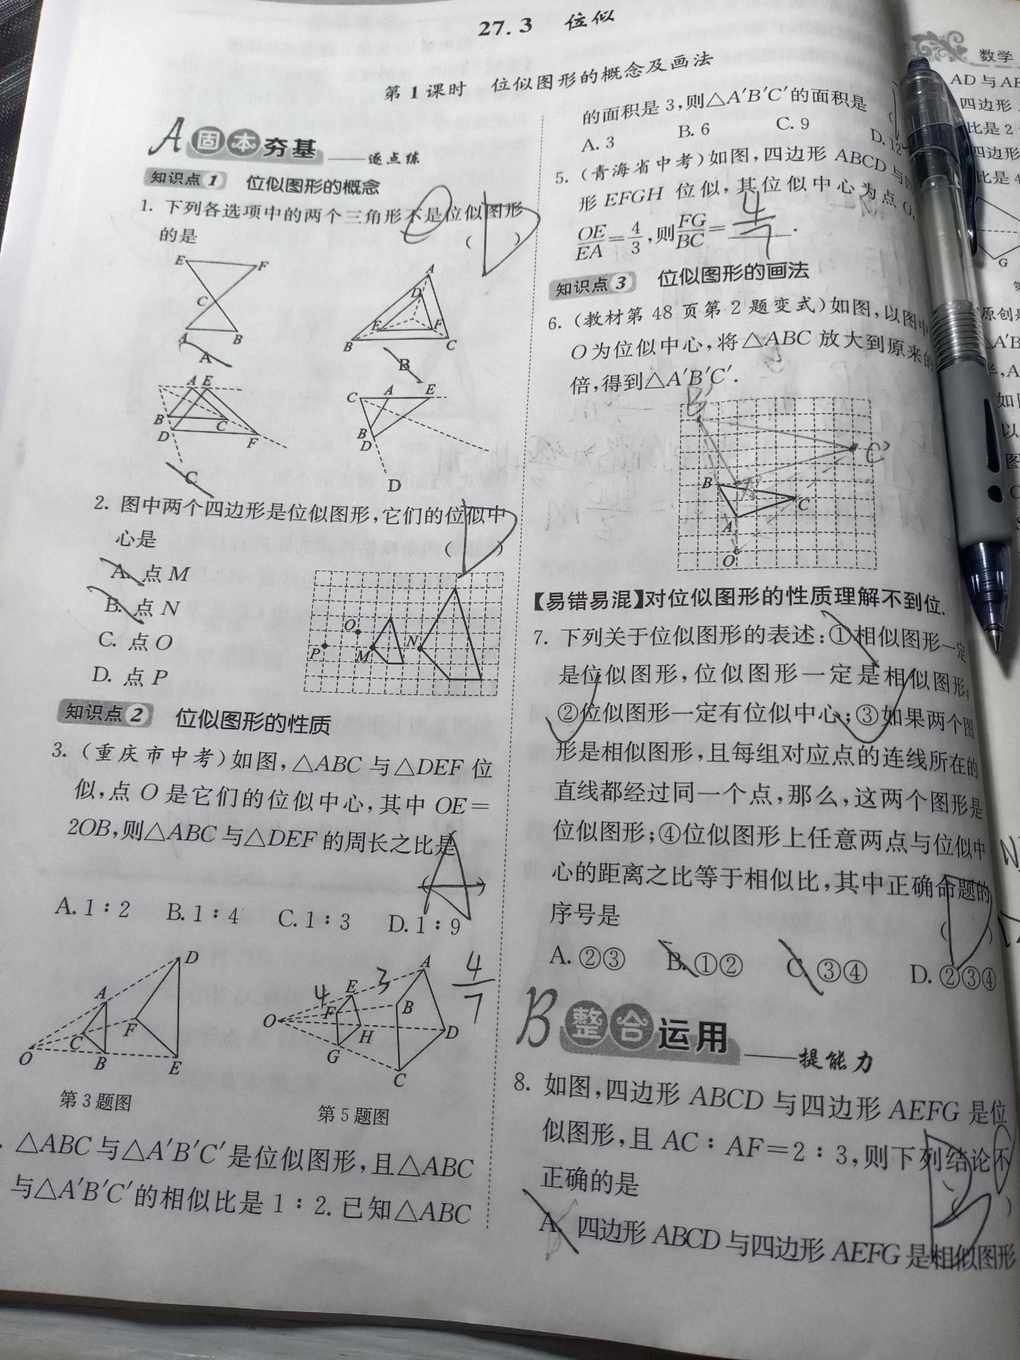 27.3 位似
第1课时 位似图形的概念及画法
A 固本夯基 ——逐点练
知识点1 位似图形的概念
1. 下列各选项中的两个三角形不是位似图形
的是 ( D )
E F C A B
A
A D E F B C
B
A E B C D F
C
C A E B D
D
2. 图中两个四边形是位似图形,它们的位似中
心是 ( D )
A. 点 M
B. 点 N
C. 点 O
D. 点 P
O P M N
知识点2 位似图形的性质
3. (重庆市中考)如图,△ABC 与△DEF 位
似,点 O 是它们的位似中心,其中 OE=
2OB,则△ABC 与△DEF 的周长之比是
( A )
A. 1∶2 B. 1∶4 C. 1∶3 D. 1∶9
D A F C O B E
第3题图
4 3 4/7
A E B F O H D G C
第5题图
. △ABC 与△A′B′C′是位似图形,且△ABC
与△A′B′C′的相似比是 1∶2.已知△ABC
的面积是 3,则△A′B′C′的面积是
A. 3 B. 6 C. 9 D. 12
5. (青海省中考)如图,四边形 ABCD 与
形 EFGH 位似,其位似中心为点 O,
OE/EA=4/3,则FG/BC= 4/7 .
知识点3 位似图形的画法
6. (教材第 48 页第 2 题变式)如图,以图中
O 为位似中心,将△ABC 放大到原来的
倍,得到△A′B′C′.
B′ C′ B C A O
【易错易混】对位似图形的性质理解不到位.
7. 下列关于位似图形的表述:①相似图形一定
是位似图形,位似图形一定是相似图形;
②位似图形一定有位似中心;③如果两个图
形是相似图形,且每组对应点的连线所在的
直线都经过同一个点,那么,这两个图形是
位似图形;④位似图形上任意两点与位似中
心的距离之比等于相似比,其中正确命题的
序号是
A. ②③ B. ①② C. ③④ D. ②③④
B 整合运用 ——提能力
8. 如图,四边形 ABCD 与四边形 AEFG 是位
似图形,且 AC∶AF=2∶3,则下列结论不
正确的是
A. 四边形 ABCD 与四边形 AEFG 是相似图形
数学
AD 与 AE
四边形
比是 2
四边形
比是
G
原创
如
以